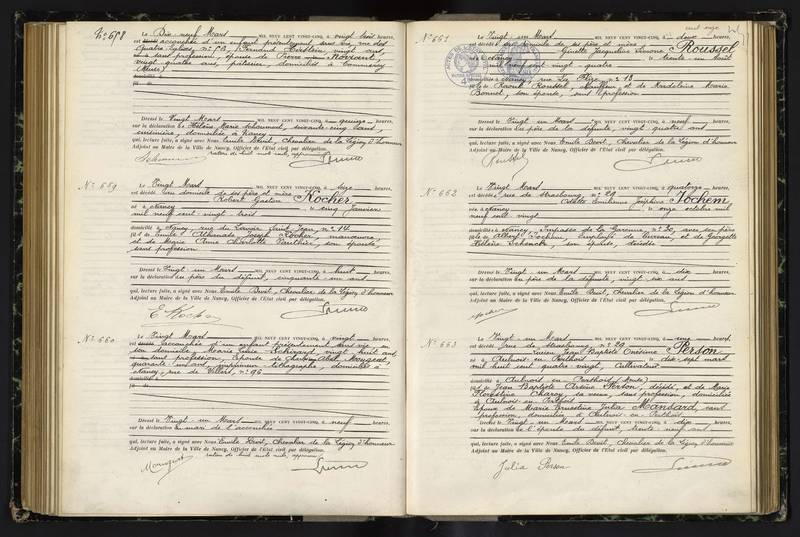 N° 658
Le Dix neuf Mars MIL NEUF CENT VINGT-CINQ, à vingt trois heures,
est accouchée d'un enfant prétendument sans vie, rue des
Quatre Eglises, n° 58, Fernande vingt ans,
sans profession, épouse de Pierre
vingt quatre ans, pâtissier, domiciliés à Commercy
(Meuse)
Dressé le Vingt Mars MIL NEUF CENT VINGT-CINQ, à quinze heures,
sur la déclaration de Hélène Marie soixante-cinq ans,
domiciliée à Nancy
qui, lecture faite, a signé avec Nous, Emile Chevalier de la Légion d'honneur
Adjoint au Maire de la Ville de Nancy, Officier de l'Etat civil par délégation.
N° 659
Le Vingt Mars MIL NEUF CENT VINGT-CINQ, à seize heures,
est décédé au domicile de ses père et mère
Robert Gaston Kocher
né à Nancy le cinq Janvier
mil neuf cent vingt trois
domicilié à Nancy, rue n° 14
fils de Emile Joseph Kocher, manoeuvre,
et de Marie Anne Charlotte Vauthier, son épouse,
sans profession
Dressé le Vingt un Mars MIL NEUF CENT VINGT-CINQ, à huit heures,
sur la déclaration du père du défunt, cinquante un ans
qui, lecture faite, a signé avec Nous, Emile Chevalier de la Légion d'honneur
Adjoint au Maire de la Ville de Nancy, Officier de l'Etat civil par délégation.
E. Kocher
N° 660
Le Vingt Mars MIL NEUF CENT VINGT-CINQ, à vingt heures,
est accouchée d'un enfant prétendument sans vie en
son domicile, Marie vingt huit ans,
sans profession, épouse de Abel Mougeot,
quarante un ans, imprimeur lithographe, domiciliés à
Nancy, rue de Villers, n° 96
Dressé le Vingt un Mars MIL NEUF CENT VINGT-CINQ, à neuf heures,
sur la déclaration du mari de l'accouchée
qui, lecture faite, a signé avec Nous, Emile Chevalier de la Légion d'honneur
Adjoint au Maire de la Ville de Nancy, Officier de l'Etat civil par délégation.
Mougeot
cent onze
N° 661
Le Vingt un Mars MIL NEUF CENT VINGT-CINQ, à deux heures,
est décédée au domicile de ses père et mère
Ginette Jacqueline Simone Roussel
née à Nancy le trente un Août
mil neuf cent vingt quatre
domiciliée à Nancy, rue n° 18
fille de Raoul Roussel, Chauffeur, et de Madeleine Marie
Bonnet, son épouse, sans profession
Dressé le Vingt un Mars MIL NEUF CENT VINGT-CINQ, à neuf heures,
sur la déclaration du père de la défunte, vingt quatre ans
qui, lecture faite, a signé avec Nous, Emile Chevalier de la Légion d'honneur
Adjoint au Maire de la Ville de Nancy, Officier de l'Etat civil par délégation.
Roussel
N° 662
Le Vingt Mars MIL NEUF CENT VINGT-CINQ, à quatorze heures,
est décédée rue de Strasbourg, n° 29
Odette Emilienne Joséphine Jochem
née à Nancy le onze octobre mil
neuf cent vingt
domiciliée à Nancy, Impasse de la Garenne, n° 20, avec son père
fille de Albert Jochem, Employé de Bureau, et de Georgette
Hélène son épouse, décédée
Dressé le Vingt un Mars MIL NEUF CENT VINGT-CINQ, à dix heures,
sur la déclaration du père de la défunte, vingt six ans
qui, lecture faite, a signé avec Nous, Emile Chevalier de la Légion d'honneur
Adjoint au Maire de la Ville de Nancy, Officier de l'Etat civil par délégation.
N° 663
Le Vingt un Mars MIL NEUF CENT VINGT-CINQ, à une heures,
est décédé rue de Strasbourg, n° 29
Lucien Jean Baptiste Onésime Person
né à Aulnois en Perthois le dix-sept mars
mil huit cent quatre vingt, Cultivateur
domicilié à Aulnois en Perthois (Meuse)
fils de Jean Baptiste Arsène Person, décédé, et de Marie
Florentine Charoy, sa veuve, sans profession, domiciliée
à Aulnois en Perthois
époux de Marie Ernestine Julia Mansard, sans
profession, domiciliée à Aulnois en Perthois
Dressé le Vingt un Mars MIL NEUF CENT VINGT-CINQ, à dix heures,
sur la déclaration de l'épouse du défunt, trente neuf ans
qui, lecture faite, a signé avec Nous, Emile Chevalier de la Légion d'honneur
Adjoint au Maire de la Ville de Nancy, Officier de l'Etat civil par délégation.
Julia Person